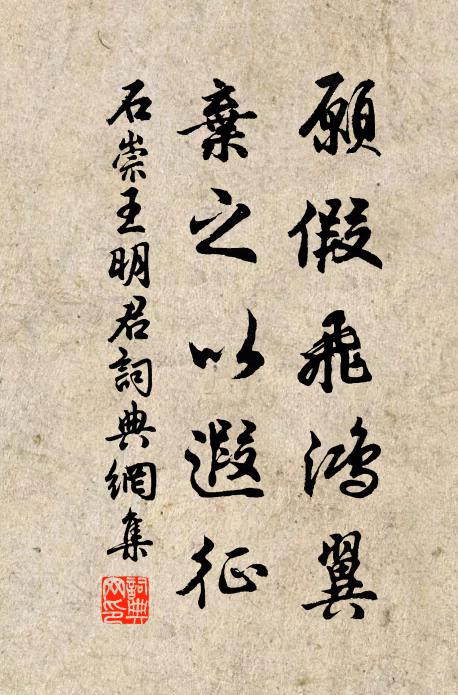 願假飛鴻翼
棄之以遐征
石崇王明君詞典網集
詞典網印